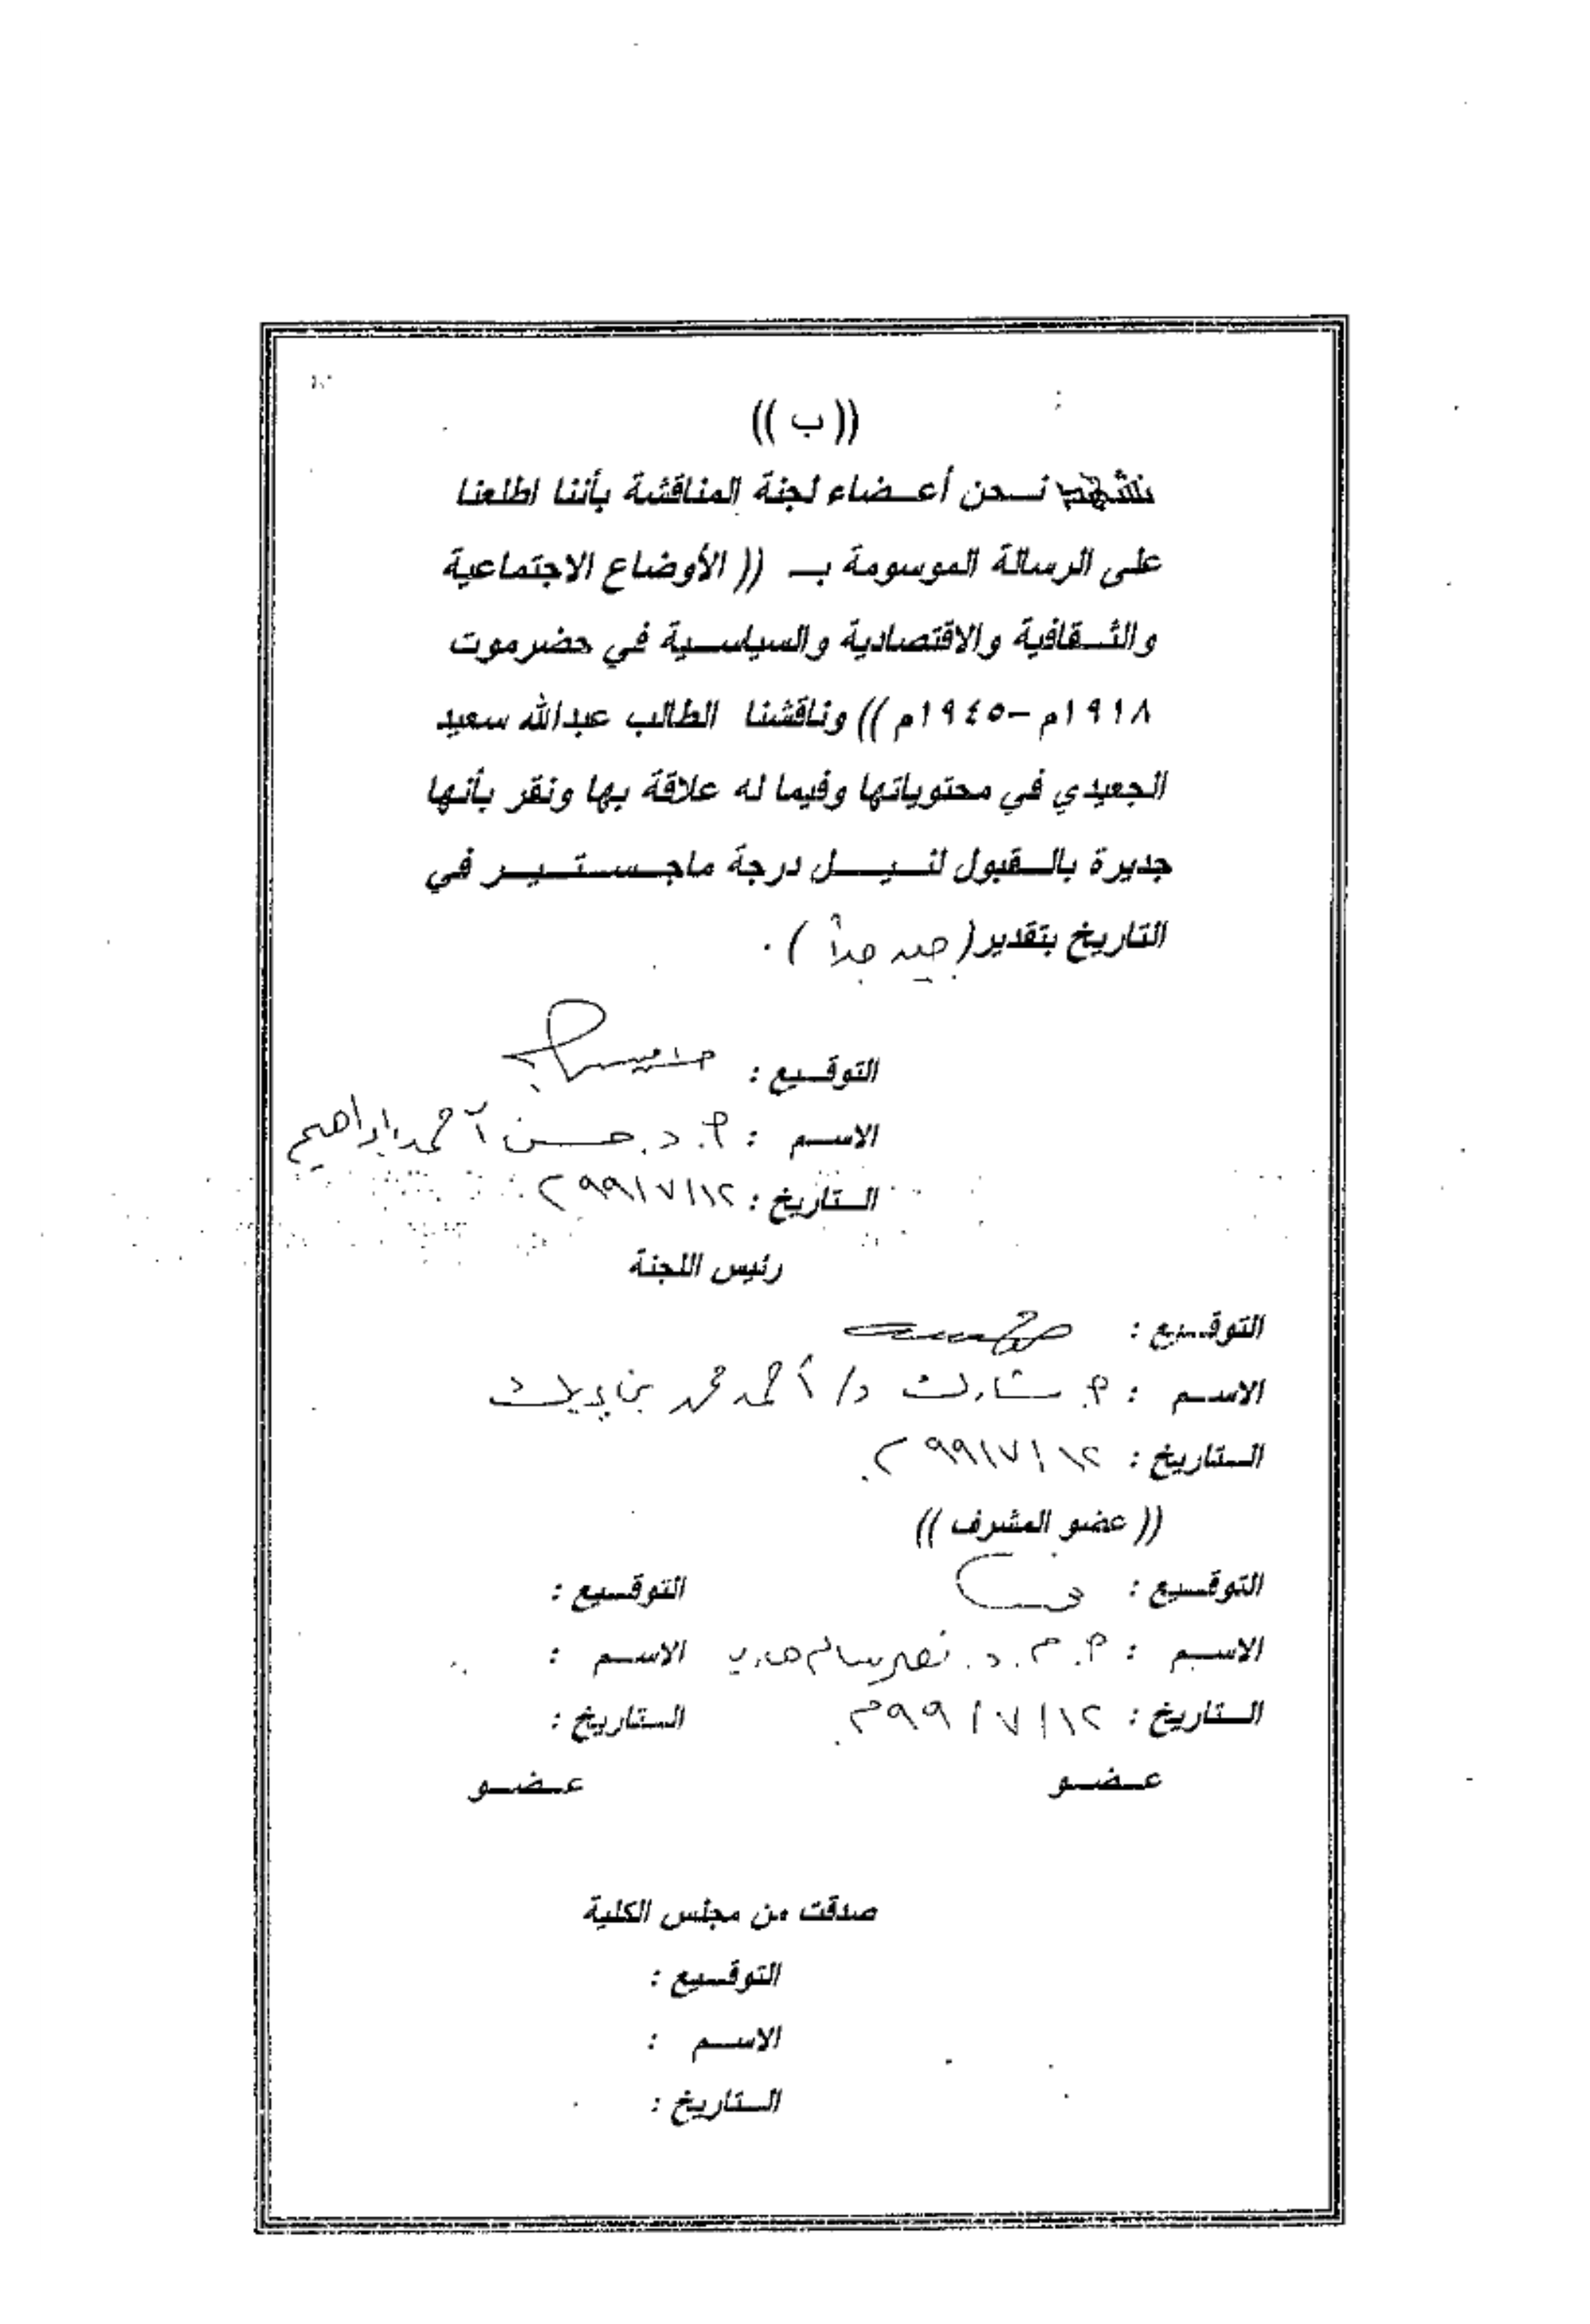 (( ب ))
نشهد نحن أعضاء لجنة المناقشة بأننا اطلعنا
على الرسالة الموسومة بـ (( الأوضاع الاجتماعية
والثقافية والاقتصادية والسياسية في حضرموت
١٩١٨م -١٩٤٥م )) وناقشنا الطالب عبدالله سعيد
الجعيدي في محتوياتها وفيما له علاقة بها ونقر بأنها
جديرة بالقبول لنيل درجة ماجستير في
التاريخ بتقدير ( جيد جداً ) .
التوقيع :
الاسم : أ. د. حسن أحمد إبراهيم
التاريخ : ١٢/٧/٩٩م
رئيس اللجنة
التوقيع :
الاسم : أ. مشارك د/ أحمد محمد بن بريك
التاريخ : ١٢/٧/٩٩م
(( عضو المشرف ))
التوقيع : التوقيع :
الاسم : أ. م. د. سالم الاسم :
التاريخ : ١٢/٧/٩٩م التاريخ :
عضو عضو
صدقت من مجلس الكلية
التوقيع :
الاسم :
التاريخ :